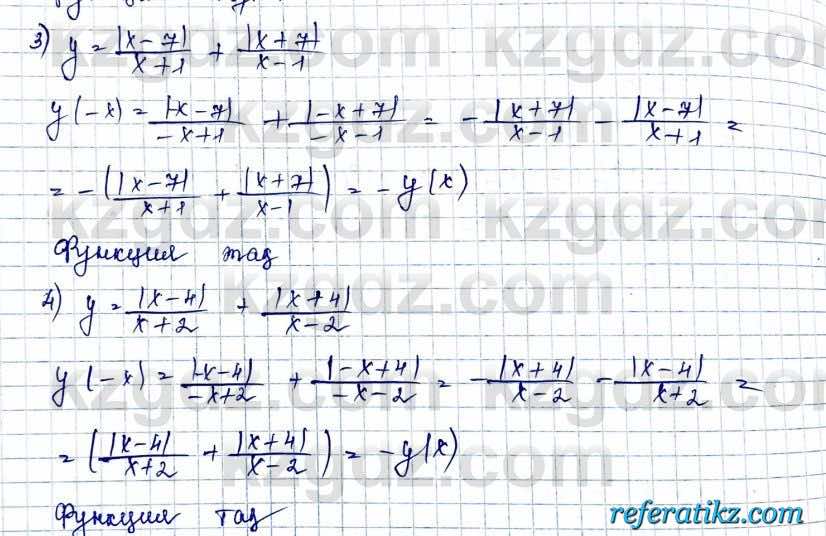 3) y = |x-7|/x+1 + |x+7|/x-1
y(-x) = |-x-7|/-x+1 + |-x+7|/-x-1 = -|x+7|/x-1 - |x-7|/x+1 =
= -(|x-7|/x+1 + |x+7|/x-1) = -y(x)
Функция тақ
4) y = |x-4|/x+2 + |x+4|/x-2
y(-x) = |-x-4|/-x+2 + |-x+4|/-x-2 = -|x+4|/x-2 - |x-4|/x+2 =
= (|x-4|/x+2 + |x+4|/x-2) = -y(x)
Функция тақ
referatikz.com
kzgdz.com